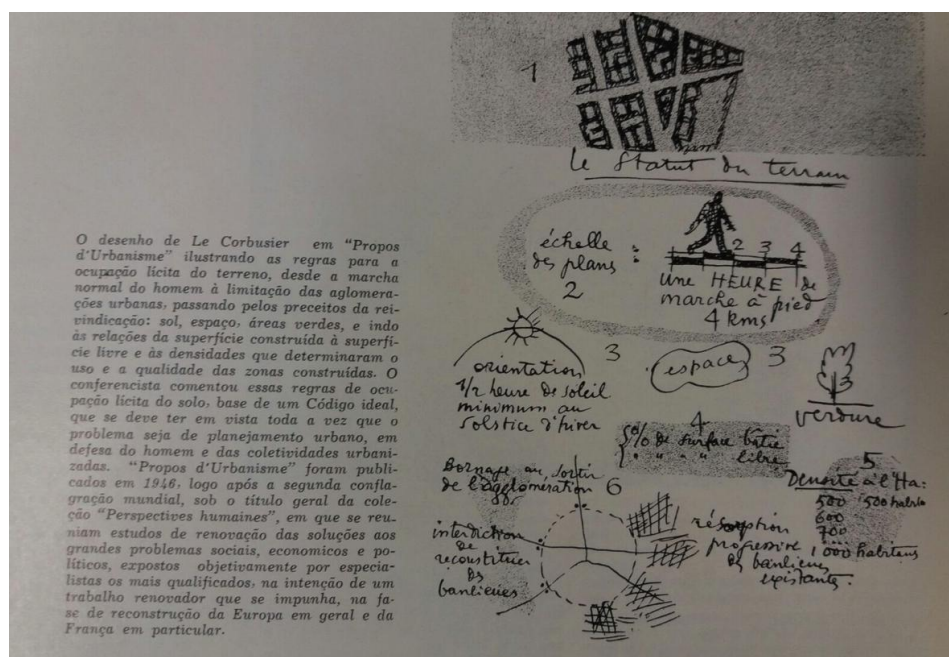 O desenho de Le Corbusier em "Propos
d'Urbanisme" ilustrando as regras para a
ocupação lícita do terreno, desde a marcha
normal do homem à limitação das aglomera-
ções urbanas, passando pelos preceitos da rei-
vindicação: sol, espaço, áreas verdes, e indo
às relações da superfície construída à superfí-
cie livre e às densidades que determinaram o
uso e a qualidade das zonas construídas. O
conferencista comentou essas regras de ocu-
pação lícita do solo, base de um Código ideal,
que se deve ter em vista toda a vez que o
problema seja de planejamento urbano, em
defesa do homem e das coletividades urbani-
zadas. "Propos d'Urbanisme" foram publi-
cados em 1946, logo após a segunda confla-
gração mundial, sob o título geral da cole-
ção "Perspectives humaines", em que se reu-
niam estudos de renovação das soluções aos
grandes problemas sociais, economicos e po-
líticos, expostos objetivamente por especia-
listas os mais qualificados, na intenção de um
trabalho renovador que se impunha, na fa-
se de reconstrução da Europa em geral e da
França em particular.
1
le Statut du terrain
échelle
des plans :
2
2 3 4
une HEURE de
marche à pied
4 kms
3
orientation
1/2 heure de soleil
minimum au
solstice d'hiver
espace 3
3
verdure
4
% de surface bâtie
" " " libre
5
Densité à l'Ha:
500 500 habits
600
700
1000 habitens
Bornage au sortir
de l'agglomération 6
interdiction
de
reconstituer
des
banlieues
résorption
progressive
des banlieues
existantes.